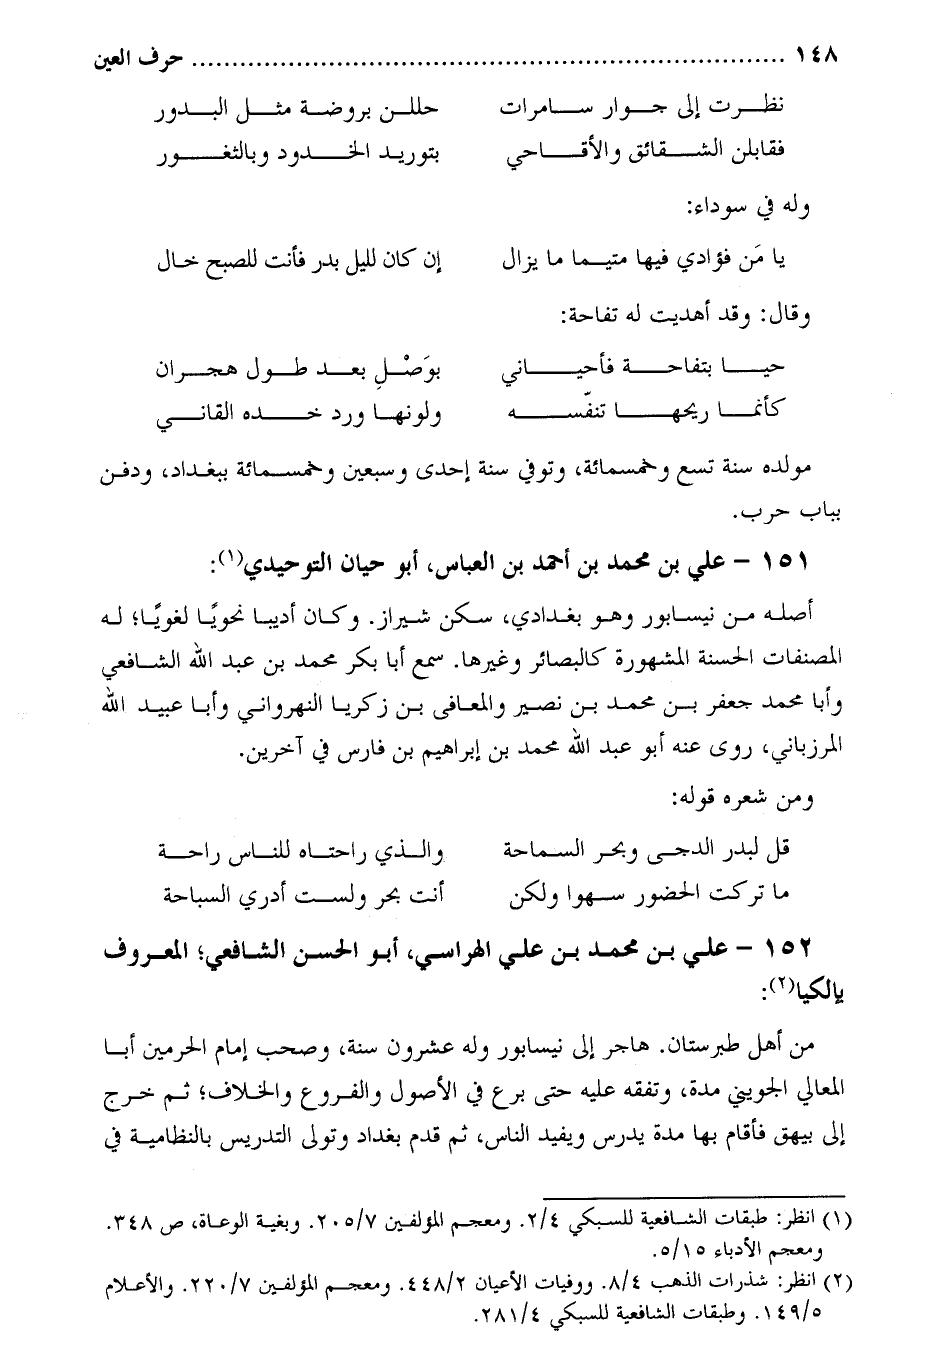 ١٤٨ ........................................................................ حرف العين
نظرت إلى جوار سامرات حللن بروضة مثل البدور
فقابلن الشقائق والأقاحي بتوريد الخدود وبالثغور
وله في سوداء:
يا مَن فؤادي فيها متيما ما يزال إن كان لليل بدر فأنت للصبح خال
وقال: وقد أهديت له تفاحة:
حيا بتفاحة فأحياني بوَصْلِ بعد طول هجران
كأنما ريحها تنفّسه ولونها ورد خده القاني
مولده سنة تسع وخمسمائة، وتوفي سنة إحدى وسبعين وخمسمائة ببغداد، ودفن
بباب حرب.
١٥١ – علي بن محمد بن أحمد بن العباس، أبو حيان التوحيدي(١):
أصله من نيسابور وهو بغدادي، سكن شيراز. وكان أديبا نحويًا لغويًا؛ له
المصنفات الحسنة المشهورة كالبصائر وغيرها. سمع أبا بكر محمد بن عبد الله الشافعي
وأبا محمد جعفر بن محمد بن نصير والمعافى بن زكريا النهرواني وأبا عبيد الله
المرزباني، روى عنه أبو عبد الله محمد بن إبراهيم بن فارس في آخرين.
ومن شعره قوله:
قل لبدر الدجى وبحر السماحة والذي راحتاه للناس راحة
ما تركت الحضور سهوا ولكن أنت بحر ولست أدري السباحة
١٥٢ – علي بن محمد بن علي الهراسي، أبو الحسن الشافعي؛ المعروف
بإلكيا(٢):
من أهل طبرستان. هاجر إلى نيسابور وله عشرون سنة، وصحب إمام الحرمين أبا
المعالي الجويني مدة، وتفقه عليه حتى برع في الأصول والفروع والخلاف؛ ثم خرج
إلى بيهق فأقام بها مدة يدرس ويفيد الناس، ثم قدم بغداد وتولى التدريس بالنظامية في
(١) انظر: طبقات الشافعية للسبكي ٢/٤. ومعجم المؤلفين ٢٠٥/٧. وبغية الوعاة، ص ٣٤٨.
ومعجم الأدباء ٥/١٥.
(٢) انظر: شذرات الذهب ٨/٤. ووفيات الأعيان ٤٤٨/٢. ومعجم المؤلفين ٢٢٠/٧. والأعلام
١٤٩/٥. وطبقات الشافعية للسبكي ٢٨١/٤.